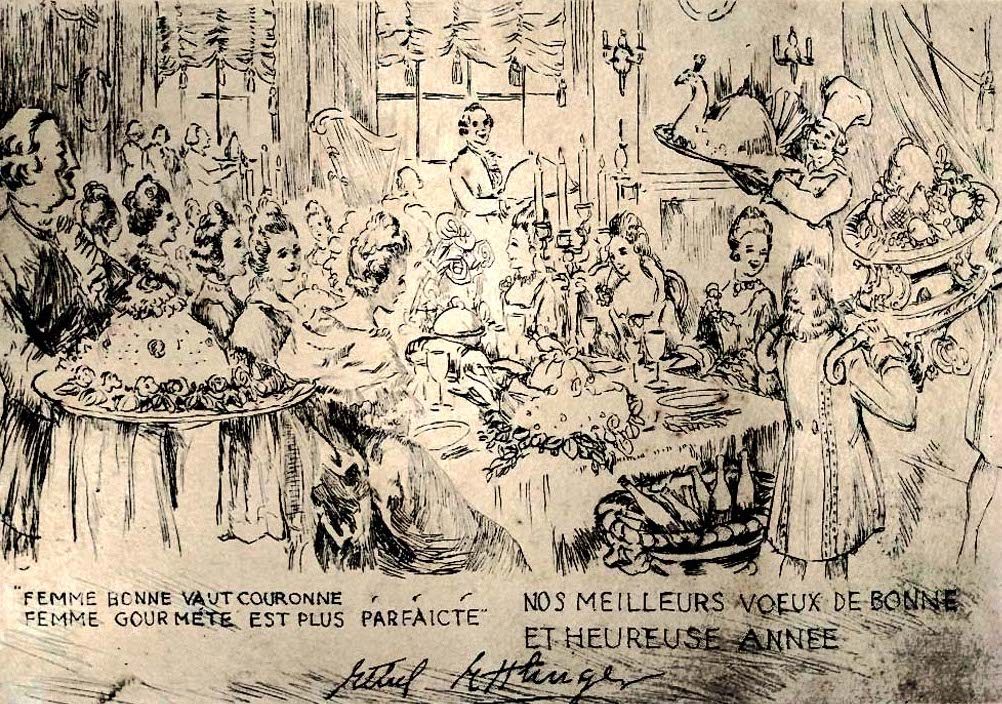 "FEMME BONNE VAUT COURONNE . . . .
FEMME GOURMÉTE EST PLUS PARFAICTE"
NOS MEILLEURS VOEUX DE BONNE
ET HEUREUSE ANNEE